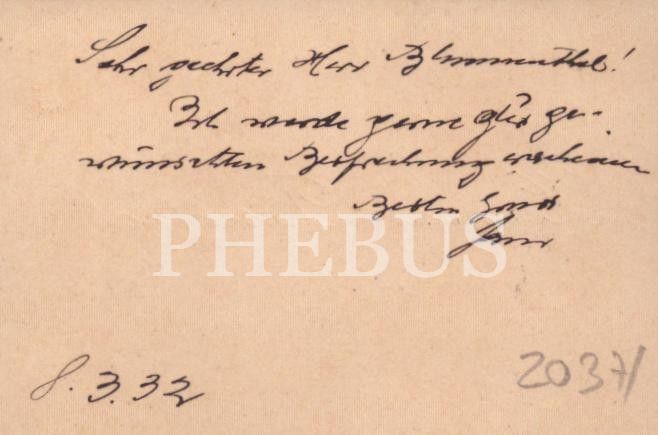 Sehr geehrter Herr Blumenthal!
Ich werde gerne zur ge-
wünschten Besprechung erscheinen
Besten Gruss
PHEBUS
8.3.32
2037/